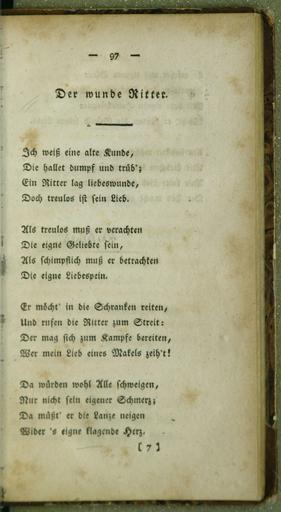 — 97 —
Der wunde Ritter.
Ich weiß eine alte Kunde,
Die hallet dumpf und trüb';
Ein Ritter lag liebeswunde,
Doch treulos ist sein Lieb.
Als treulos muß er verachten
Die eigne Geliebte sein,
Als schimpflich muß er betrachten
Die eigne Liebespein.
Er möcht' in die Schranken reiten,
Und rufen die Ritter zum Streit:
Der mag sich zum Kampfe bereiten,
Wer mein Lieb eines Makels zeih't!
Da würden wohl Alle schweigen,
Nur nicht sein eigener Schmerz;
Da müßt' er die Lanze neigen
Wider 's eigne klagende Herz.
[ 7 ]